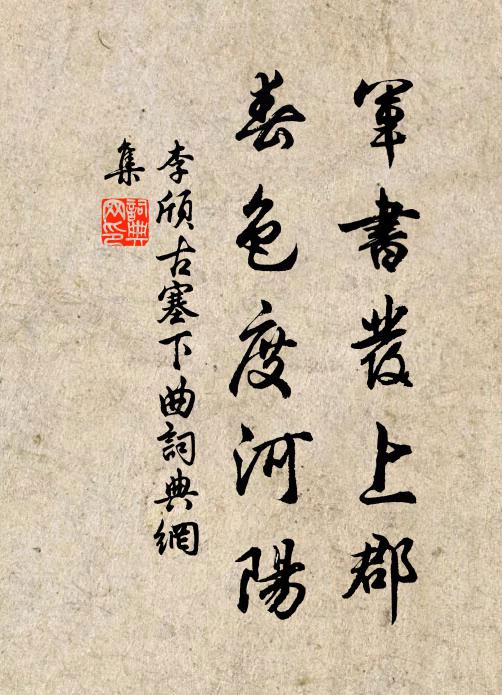 軍書發上郡
春色度河陽
李頎古塞下曲詞典網
集
詞典
网印